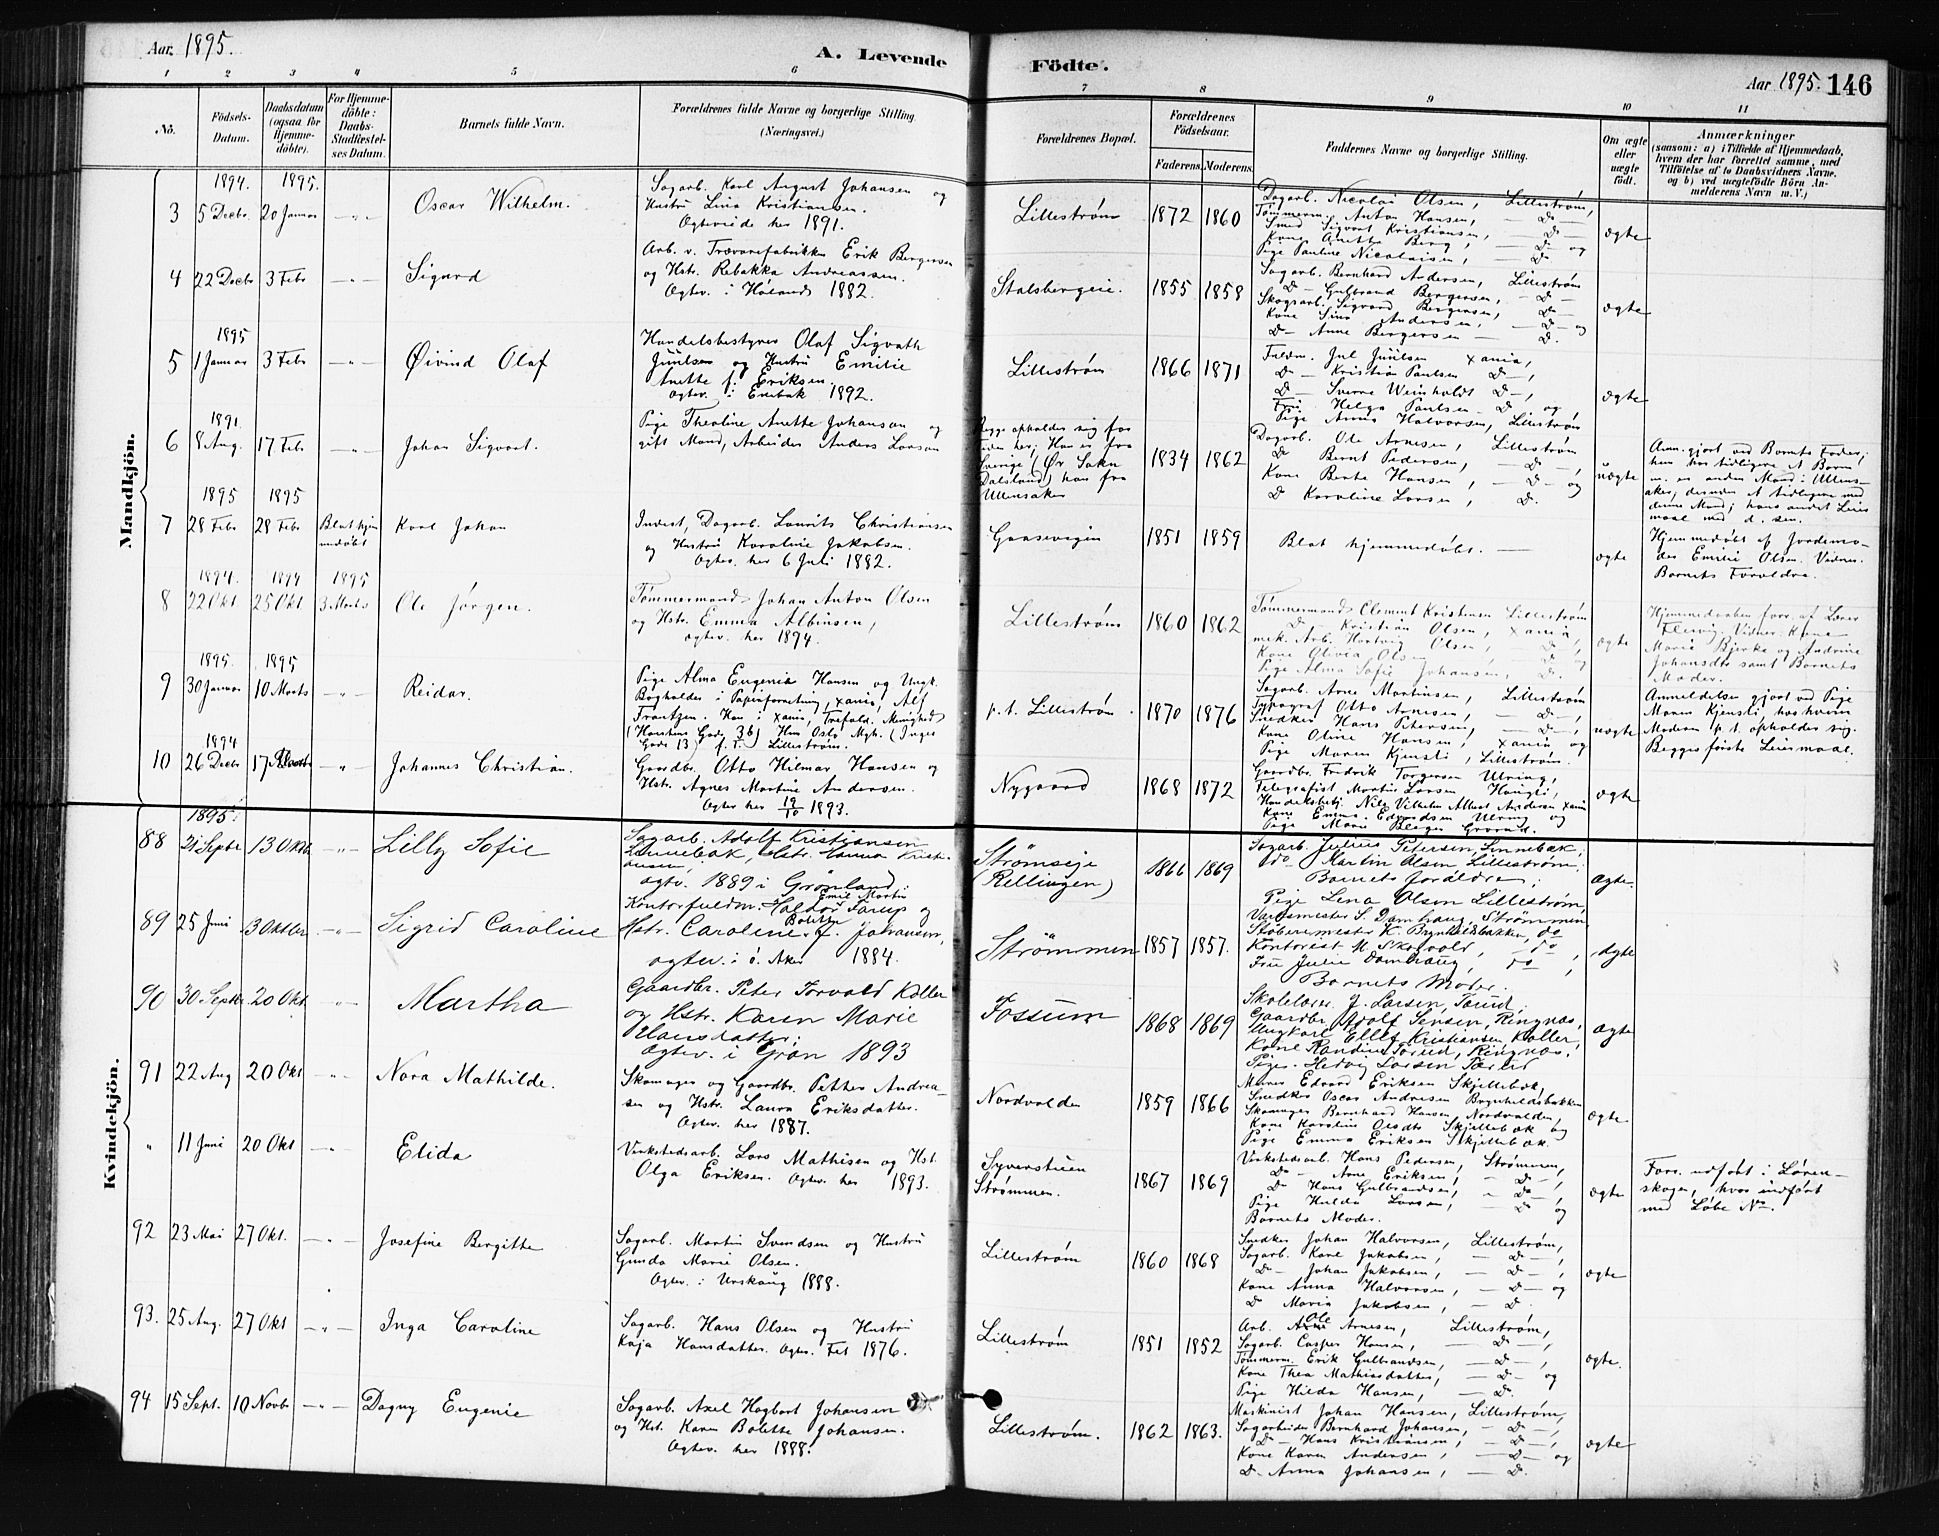 Aar. 1895.
A. Levende Födte.
Aar 1895. 146
1 2 3 4 5 6 7 8 9 10 11
No.
Födsels-Datum.
Daabsdatum (ogsaa for Hjemme-döbte).
For Hjemme-döbte: Daabs-Stadfæstelses Datum.
Barnets fulde Navn.
Forældrenes fulde Navne og borgerlige Stilling (Næringsvei.)
Forældrenes Bopæl.
Forældrenes Födselsaar.
Faderens. Moderens.
Faddernes Navne og borgerlige Stilling.
Om ægte eller uægte födt.
Anmærkninger
(saasom: a) i Tilfælde af Hjemmedaab,
hvem der har forrettet samme, med
Tilföielse af to Daabsvidners Navne.
og b) ved uægtefödte Börn An-
melderens Navn m. V.)
Mandkjön.
1894. 1895.
3 5 Decbr. 20 Januar Oscar Wilhelm.
Sagarb. Karl August Johansen og
Hustru Lina Kristiansen.
Ogteviede her 1891.
Lillestrøm 1872 1860
Dagarb. Nicolai Olsen, Lillestrøm,
Tømmerm. Anton Hansen, — D —
Smed Sigvart Kristiansen, — D —
Kone Anette Berg, — D — og
Pige Pauline Nicolaisen, — D
ægte
4 22 Decbr 3 Febr Sigurd
Arb. v. Trævarefabrikken Erik Bergersen
og Hstr. Rebakka Andreassen.
Ogtev. i Høland 1882.
Stalsbergeie. 1855 1858
Sagarb. Bernhard Andersen, Lillestrøm
D — Gulbrand Bergersen, — D —
Skogsarb. Sigvard Bergersen, D —
Kone Sina Andersen, — D — og
D — Anne Bergersen — D.
ægte
1895
5 1 Januar 3 Febr Øivind Olaf
Handelsbestyrer Olaf Sigvath
Juulsen og Hustru Emilie
Anette f. Eriksen.
Ogtev. i Enebak 1892.
Lillestrøm 1866 1871
Fuldm. Jul Juulsen Xania,
D — Kristian Paulsen D —,
D — Sverre Weinholdt D —,
Frk. Helga Paulsen D og
Pige Anna Halvorsen, Lillestrøm
ægte
1891.
6 8 Aug. 17 Febr Johan Sigvart.
Pige Theoline Anette Johanson og
gift Mand, Arbeider Anders Larson
Begge opholder sig for
Tiden her; Han er fra
Sverige (Ør Sokn
Dalsland) hun fra
Ullensaker
1834 1862
Dagarb. Ole Arnesen, Lillestrøm
D Bernt Pedersen, — D —,
Kone Berte Hansen, — D — og
D Karoline Larsen, D.
uægte
Anm. gjort ved Barnets Fader;
hun har tidligere et Barn
m. en anden Mand i Ullens-
aker, desuden et tidligere med
denne Mand; hans andet Leier
maal med d. sen.
1895 1895
7 28 Febr 28 Febr Blot hjemmedøbt Karl Johan
Inderst, Dagarb. Laurits Christiansen
og Hustru Karoline Jakobsen.
Ogtev. her 6 Juli 1882.
Gaasevigen 1851 1859
Blot hjemmedøbt.
ægte
Hjemmedøbt af Jordemo-
der Emilie Olsen. Vidner:
Barnets Forældre.
1894. 1894 1895
8 22 Okt 25 Okt 3 Marts Ole Jørgen.
Tømmermand Johan Anton Olsen
og Hstr. Emma Albinsen,
ogtev. her 1894.
Lillestrøm 1860 1862
Tømmermand Clement Kristiansen Lillestrøm
D — Kristian Olsen, Xania,
mek. Arb. Hartvig Olsen, — D —,
Kone Olivia Olsen D og
Pige Alma Sofie Johansen, D.
ægte
Hjemmedaaben forr. af Lærer
Flervig. Vidner: Kone
Marie Bjerke og Andrine
Johansdtr samt Barnets
Moder.
1895. 1895
9 30 Januar 10 Marts Reidar.
Pige Alma Eugenia Hansen og Ungk.
Bogholder i Papirforretning, Xania, Alf
Frantzen. Han i Xania, Trefold. Menighed
(Horstins Gade 36) Hun Oslo Mgh. (Inges
Gade 13) f. T. Lillestrøm.
p.t. Lillestrøm. 1870 1876
Sagarb. Arne Martinsen, Lillestrøm
Typograf Otto Arnesen, — D —,
Snedker Hans Petersen, — D —,
Kone Oline Hansen, Xania og
Pige Maren Kjensli, Lillestrøm.
uægte
Anmeldelsen gjort ved Pige
Maren Kjensli, hos hvem
Moderen p.t. opholder sig.
Begges første Leiermaal.
1894
10 26 Decbr 17 Marts Johannes Christian.
Gaardbr. Otto Hilmar Hansen og
Hstr. Agnes Martine Andersen.
Ogtev her 19/10 1893.
Nygaard 1868 1872
Gaardbr. Fridrik Torgersen Ulring,
Telegrafist Martin Larsen Haugli,
Handelsbetj. Nils Vilhelm Albert Andersen Xania
Kone Emma Edvardsen Ulring og
Pige Marie Berger Grorud.
ægte
Kvindekjön.
1895.
88 21 Septbr 13 Oktb. Lilly Sofie
Sagarb. Adolf Kristiansen
Linnebæk, Hstr. Hanna Kristi-
ansen
ogtv. 1889 i Grönland.
Strømseje
(Rellingen) 1866 1869
Sagarb. Julius Petersen, Linnebæk,
do Martin Olsen Lillestrøm,
Barnets Forældre;
Pige Lena Olsen Lillestrøm
ægte.
89 25 Juni 3 Oktbr. Sigrid Caroline
Kontorfuldm. Halvor Emil Martin Farup og
Hstr. Caroline Bolette f. Johansen,
ogtev. i Ö. Aker 1884.
Strømmen 1857 1857.
Værksmester S. Damhaug, Strømmen,
Støberimester K. Brynhildsbakken, do
Kontorist M. Skjevold, — do
Frue Julie Damhaug, do,
Barnets Moder.
ægte
90 30 Septbr 20 Okt. Martha
Gaardbr. Peter Torvald Koller
og Hstr. Karen Marie
Hansdatter,
Ogtev. i Gran 1893
Fossum 1868 1869
Skolelærer J. Larsen, Torud.
Gaardbr. Adolf Jensen, Ringnæs,
Ungkarl Elling Kristiansen, Koller,
Kone Randine Torud, Ringnæs,
Pige Hedvig Larsen Torud
ægte
91 22 Aug 20 Okt Nora Mathilde.
Skomager og Gaardbr. Petter Andrea-
sen og Hstr. Laura Eriksdatter.
Ogtev. her 1887.
Nordvolden 1859 1866
Murer Edvard Eriksen Skjellebæk,
Snedker Oscar Andresen Brynhildsbakken
Skomager Bernhard Hansen, Nordvolden,
Kone Karoline Olsdtr Skjellebæk og
Pige Emma Eriksen Skjellebæk.
ægte
" 11 Juni 20 Okt Elida
Værkstedsarb. Lars Mathisen og Hst.
Olga Eriksen. Ogtev. her 1893.
Syverstuen
Strømmen. 1867 1869
Værkstedsarb. Hans Pedersen, Strømmen,
D — Arne Eriksen, — D —,
D — Hans Gulbrandsen, — D —,
Pige Hulda Larsen, — D og
Barnets Moder.
ægte
Forr. udført i Løren-
skogen, hvor indført
med Løbe No.
92 23 Mai 27 Okt. Josefine Bergitte
Sagarb. Martin Svendsen og Hustru
Gunda Marie Olsen.
Ogtev. i Urskoug 1888.
Lillestrøm 1860 1868
Snedker Johan Halvorsen, Lillestrøm,
Sagarb. Karl Jakobsen, — D —,
D — Johan Jakobsen, — D —,
Kone Anna Halvorsen, — D — og
D Maria Jakobsen, — D.
ægte
93. 25 Aug. 27 Okt Inga Caroline
Sagarb. Hans Olsen og Hustru
Kaja Hansdatter. Ogtev. Fet 1876.
Lillestrøm 1851 1852
Arb. Ole Arnesen, Lillestrøm,
Sagarb. Casper Hansen, — D —,
Tømmerm. Erik Gulbrandsen, — D —,
Kone Thea Mathiasdatter, — D — og
Pige Hilda Hansen, — D.
ægte.
94 15 Sept. 10 Novbr Dagny Eugenie
Sagarb. Axel Hagbart Johansen
og Hst. Karen Bolette Johansen.
Ogtev. her 1888.
Lillestrøm. 1862 1863.
Maskinist Johan Hansen, Lillestrøm,
Sagarbeider Bernhard Johansen, — D —,
D — Hans Kristiansen, — D —,
Kone Karen Andersen — D — og
D — Anna Johansen, — D.
ægte